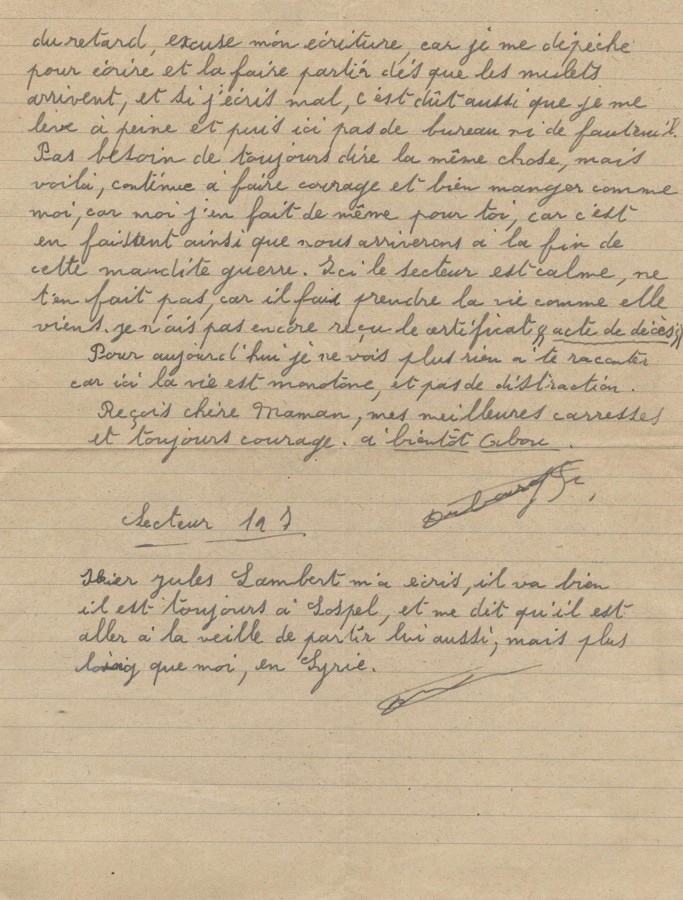 du retard, excuse mon écriture, car je me dépêche
pour écrire et la faire partir dés que les mulets
arrivent, et si j'écris mal, c'est dût aussi que je me
leve à peine et puis ici pas de bureau ni de fauteuil.
Pas besoin de toujours dire la même chose, mais
voilà, continue à faire courage et bien manger comme
moi, car moi j'en fait de même pour toi, car c'est
en faissent ainsi que nous arriverons à la fin de
cette maudite guerre. Ici le secteur est calme, ne
t'en fait pas, car il fais prendre la vie comme elle
viens. je n'ais pas encore reçu le certificat "acte de décès"
Pour aujourd'hui je ne vois plus rien a te raconter
car ici la vie est monotone, et pas de distraction.
Reçois chère Maman, mes meilleures carresses
et toujours courage. a bientôt
Secteur 197
Hier Jules Lambert m'a écris, il va bien
il est toujours à Sospel, et me dit qu'il est
aller à la veille de partir lui aussi, mais plus
que moi, en Syrie.